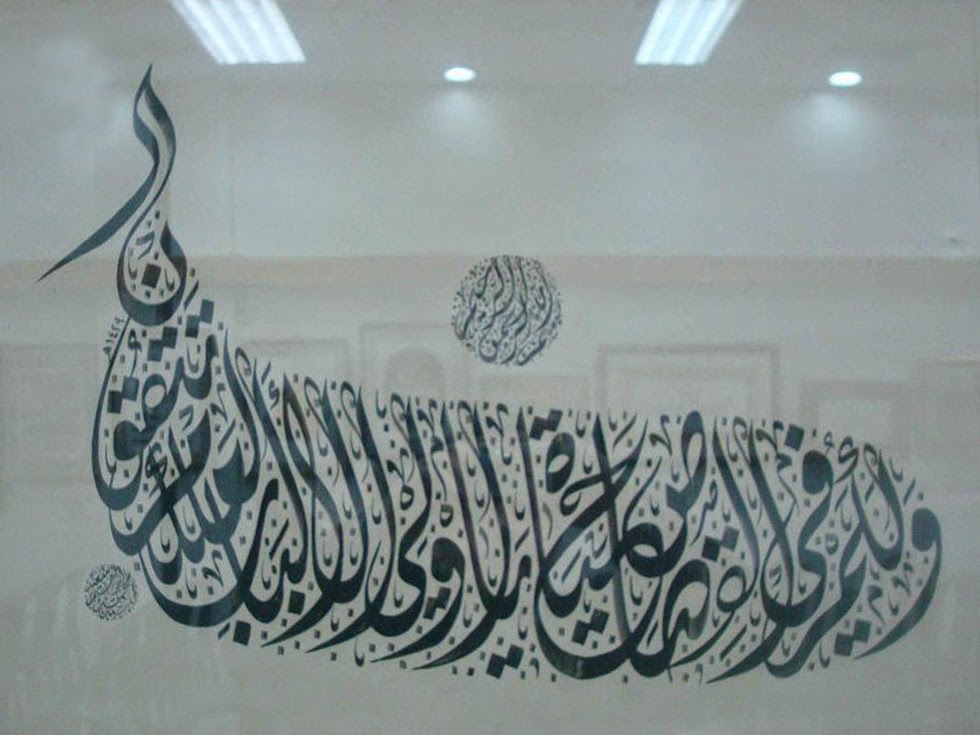 بسم الله الرحمن الرحيم
ولكم في القصاص حياة يا أولي الألباب لعلكم تتقون
١٤٢٩هـ